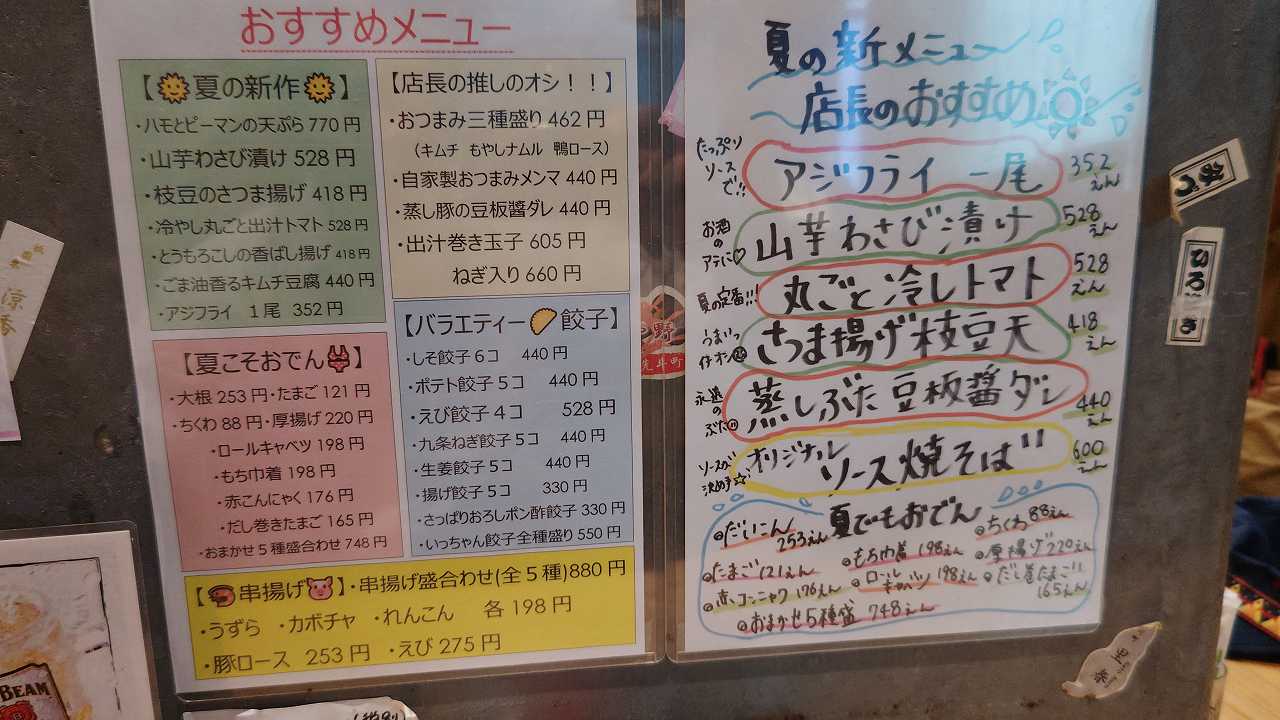 おすすめメニュー
【🌞夏の新作🌞】
・ハモとピーマンの天ぷら 770 円
・山芋わさび漬け 528 円
・枝豆のさつま揚げ 418 円
・冷やし丸ごと出汁トマト 528 円
・とうもろこしの香ばし揚げ 418 円
・ごま油香るキムチ豆腐 440 円
・アジフライ 1尾 352 円
【夏こそおでん👙】
・大根 253 円・たまご 121 円
・ちくわ 88 円・厚揚げ 220 円
・ロールキャベツ 198 円
・もち巾着 198 円
・赤こんにゃく 176 円
・だし巻きたまご 165 円
・おまかせ5種盛合わせ 748 円
【店長の推しのオシ！！】
・おつまみ三種盛り 462 円
（キムチ もやしナムル 鴨ロース）
・自家製おつまみメンマ 440 円
・蒸し豚の豆板醬ダレ 440 円
・出汁巻き玉子 605 円
ねぎ入り 660 円
【バラエティー🥟餃子】
・しそ餃子6コ 440 円
・ポテト餃子5コ 440 円
・えび餃子4コ 528 円
・九条ねぎ餃子5コ 440 円
・生姜餃子5コ 440 円
・揚げ餃子5コ 330 円
・さっぱりおろしポン酢餃子 330 円
・いっちゃん餃子全種盛り 550 円
【🍤串揚げ🐷】・串揚げ盛合わせ(全5種)880 円
・うずら ・カボチャ ・れんこん 各 198 円
・豚ロース 253 円 ・えび 275 円
夏の新メニュー
〜店長のおすすめ
たっぷりソースで!! アジフライ 一尾 352えん
お酒のアテに♡ 山芋わさび漬け 528えん
夏の定番!!! 丸ごと冷しトマト 528えん
さつま揚げ枝豆天 418えん
永遠のぶた 蒸しぶた豆板醤ダレ 440えん
ソースが決め手☆ オリジナルソース焼そば 600えん
夏でもおでん
だいこん 253えん
ちくわ 88えん
たまご 121えん
もち巾着 198えん
厚揚げ 220えん
赤コンニャク 176えん
ロールキャベツ 198えん
だし巻たまご 165えん
おまかせ5種盛 748えん
野
BEAM